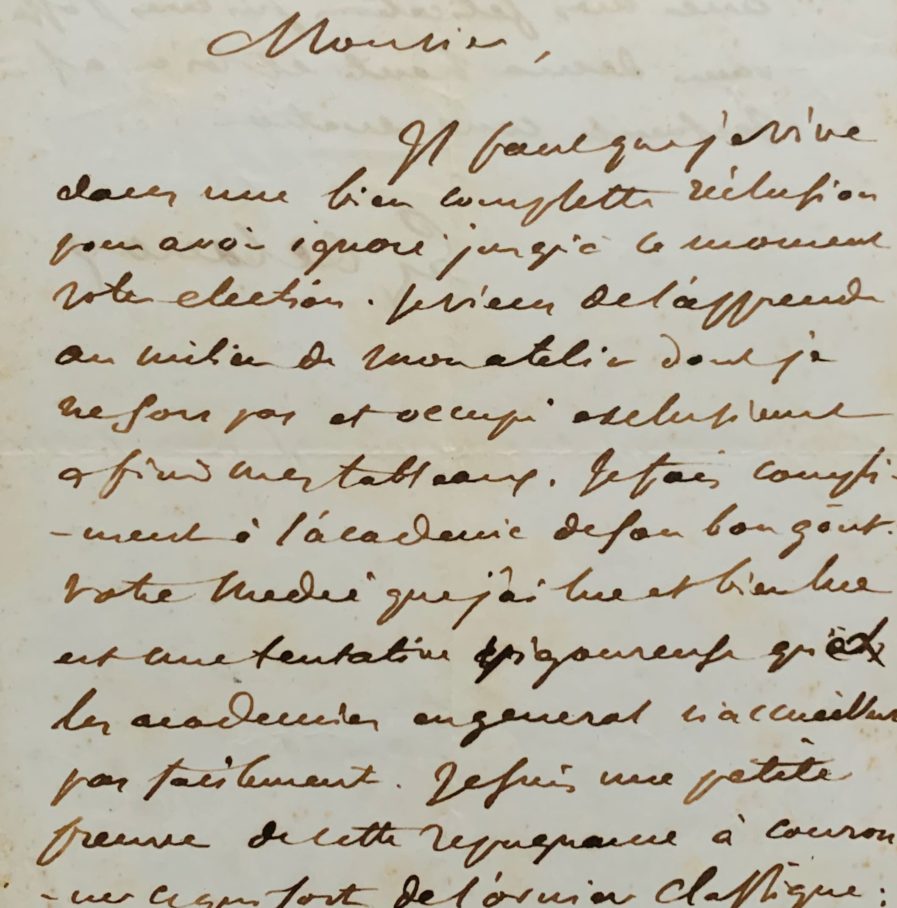 Monsieur,
Il faut que je vive
dans une bien complette réclusion
pour avoir ignoré jusqu'à ce moment
votre election. Je viens de l'apprendre
au milieu de mon atelier dont je
ne sors pas et occupé exclusivement
a finir mes tableaux. Je fais compli-
-ment à l'académie de son bon goût.
Votre Medée que j'ai lue et bien lue
est une tentative vigoureuse que
les academies en general n'accueillent
pas facilement. Je suis une petite
preuve de cette repugnance à couron
-ner ce qui sort de l'ornier classique: